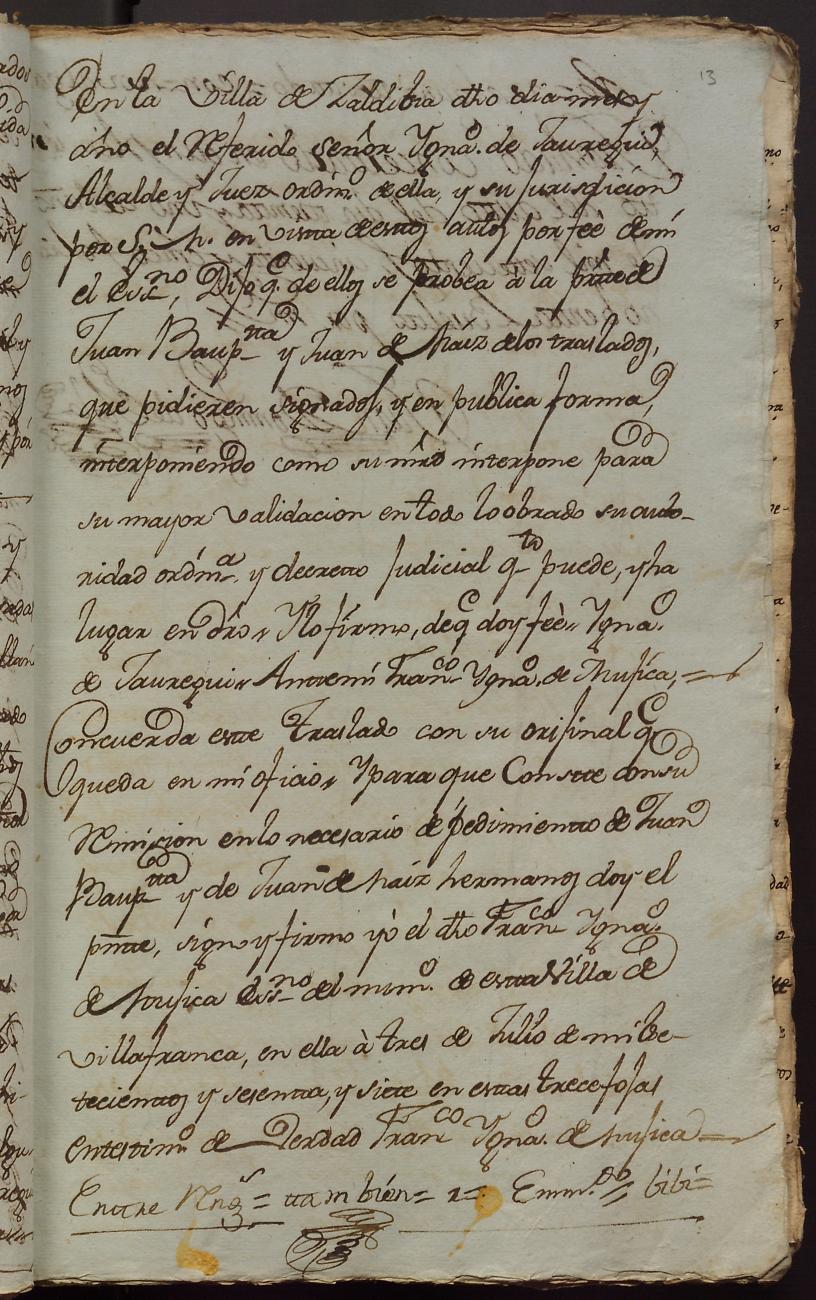 13
En la Villa de Zaldibia dho dia mes y
año el Referido señor Ygnaº. de Jauregui,
Alcalde y Juez ordinº de ella, y su Jurisdicion
por S. M. en vista de estos autos por feè de mi
el Essno, Dijo q. de ellos se Probea à la ptte de
Juan Baupta y Juan de Maiz de los traslados,
que pidieren signados, y en publica forma,
interponiendo como su mrd interpone para
su mayor validacion en todo lo obrado su auto-
ridad ordinª. y decretto Judicial qto puede, y ha
lugar en dro, Y lo firmo, de q doy feè, Ygnaº.
de Jauregui, Antemi Franco Ygnaº. de Mujica,
Concuerda este Traslado con su orijinal q
queda en mi oficio, Y para que Conste con su
Remision en lo necesario de pedimiento de Juan
Baupta y de Juan de Maiz hermanos doy el
pntte, signo y firmo yò el dho Franco Ygnaº
de Mujica Essno del numº. de esta Villa de
Villafranca, en ella à tres de Julio de mil se-
tecientos y sesenta, y siete en estas trece fojas
En testimº de Verdad Franco Ygnaº. de Mujica
Entre Rens = tambien = Emmdo = bibi =